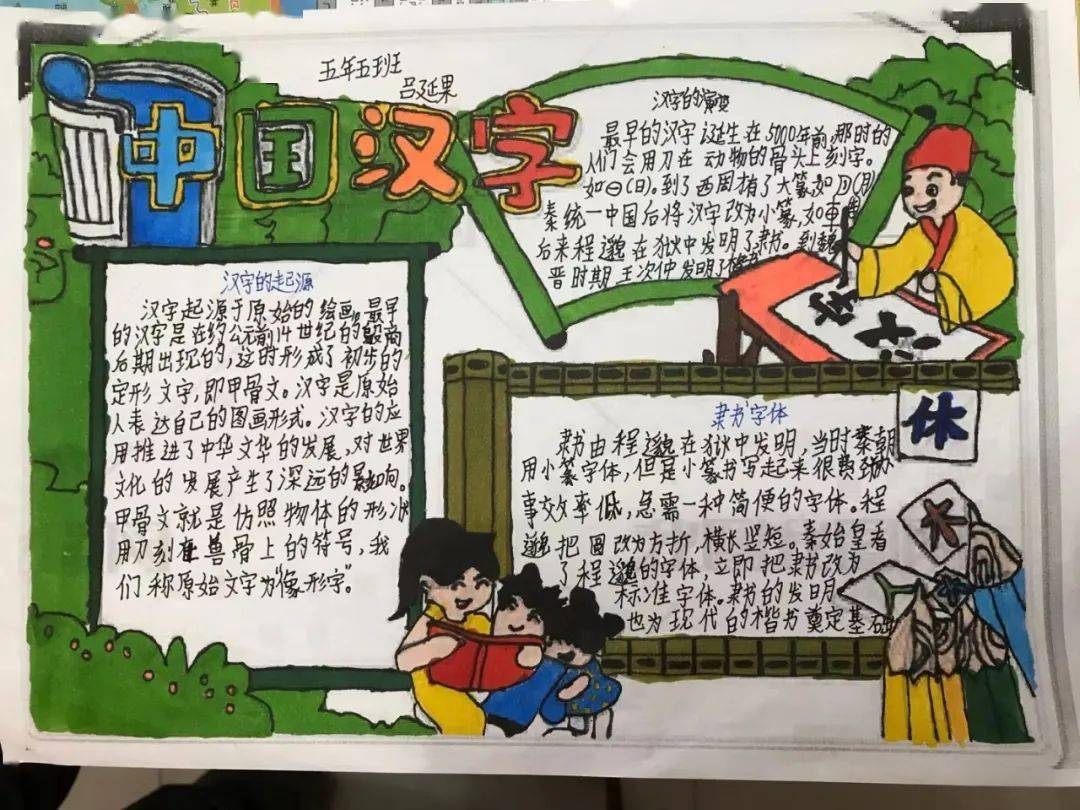 五年五班
吕延果
中国汉字
汉字的演变
最早的汉字诞生在5000年前,那时的
人们会用刀在动物的骨头上刻字。
如⊖(日)。到了西周有了大篆,如(月)
秦统一中国后将汉字改为小篆,如車
后来程邈在狱中发明了隶书。到魏
晋时期王次仲发明了楷书
汉字的起源
汉字起源于原始的绘画。最早
的汉字是在约公元前14世纪的殷商
后期出现的,这时形成了初步的
定形文字,即甲骨文。汉字是原始
人表达自己的图画形式。汉字的应
用推进了中华文华的发展,对世界
文化的发展产生了深远的影响。
甲骨文就是仿照物体的形状
用刀刻在兽骨上的符号,我
们称原始文字为“像形字”。
隶书字体
隶书由程邈在狱中发明,当时秦朝
用小篆字体,但是小篆书写起来很费劲
事效率低,急需一种简便的字体。程
邈把圆改为方折,横长竖短。秦始皇看
了程邈的字体,立即把隶书改为
标准字体。隶书的发明
也为现代的楷书奠定基础
休
木